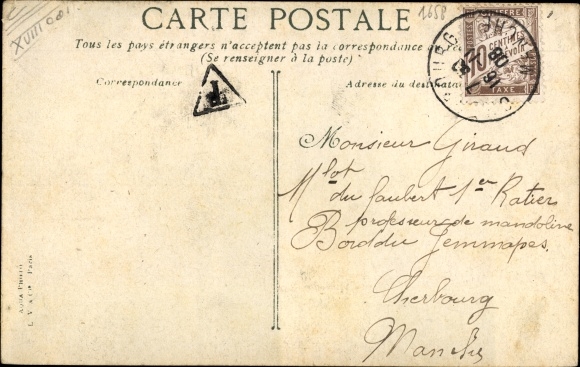 XVIII
1658
CARTE POSTALE
Tous les pays étrangers n'acceptent pas la correspondance au
(Se renseigner à la poste)
Correspondance
Adresse du destinataire
T
CHIFFRE
10 CENTIMES
À PERCEVOIR
TAXE
Monsieur Giraud
Mlot
du Jaubert 1er Ratier
professeur de mandoline
Bord du Jemmapes.
Cherbourg
Manche
AQUA PHOTO
L. V. & Cie PARIS